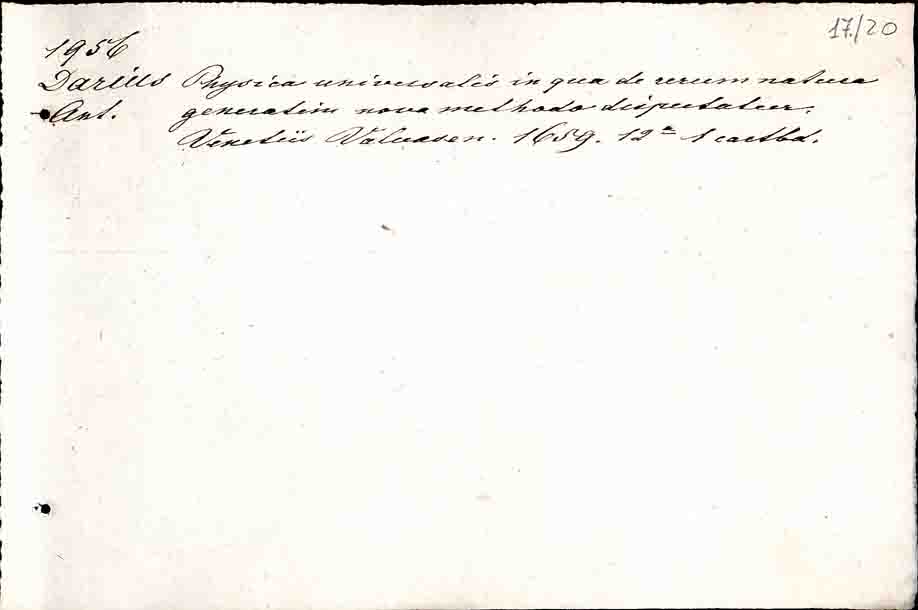 17/20
1956
Darius Physica universalis in qua de rerum natura
Ant. generatim nova methodo disputatur.
Venetiis Valvasen. 1659. 12° 1 cartbd.